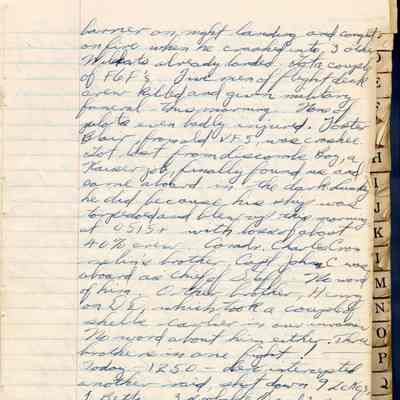 barrier on night landing and caught
on fire when he crashed into 3 other
Wildcats already landed. Got a couple
of F6F's. Five men of flight deck
crew killed and given military
funeral this morning. None of
pilots even badly injured. Foster
Blair, from old VF5, was crashee.
Lot. lost from discomb Bay, a
Kaiser job, finally found us and
came aboard in the dark. Lucky
he did because his ship was
torpedoed and blew up this morning
at 0515+ with loss of about
40% crew. Comdr. Charles Crom-
melin's brother, Capt John C was
aboard as Chief of Staff. No word
of him. Other brother, Henry
on DE, which took a couple of
shells earlier in our invasion
No word about him either. Three
brothers in one fight!
Today - 1250 - dec. intercepted
another raid, shot down 9 Zekes,
1 Betty
E
F
H
I
J
K
L
M
N
O
P
Q